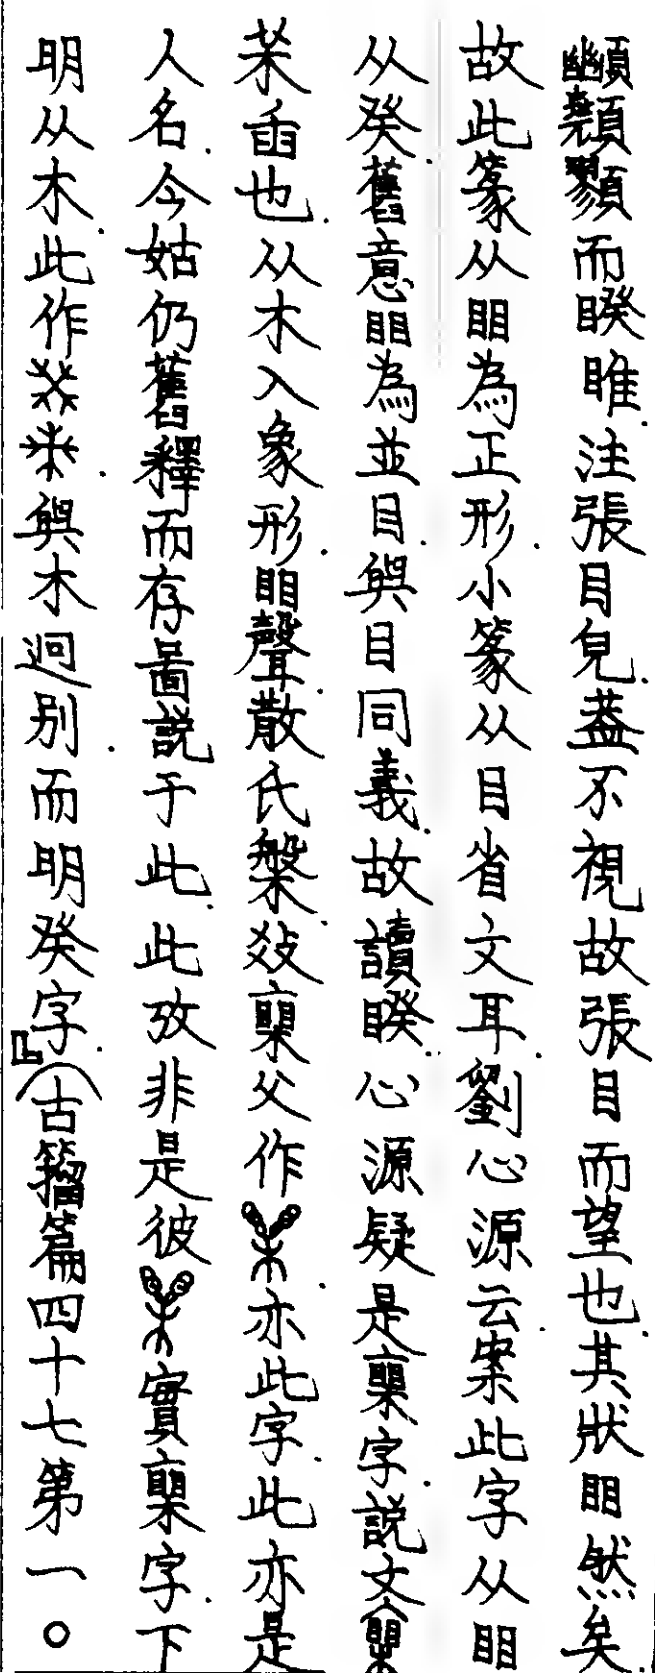 而睽睢注張目皃蓋不視故張目而望也其狀䀠然矣
故此篆从䀠為正形小篆从目省文耳劉心源云案此字从䀠
从癸舊意䀠為並目與目同義故讀睽心源疑是字説文
也从木入象形䀠聲散氏槃父作亦此字此亦是
人名今姑仍舊釋而存啚説于此此攷非是彼實字下
明从木此作與木迥别而明癸字』（古籀篇四十七第一〇